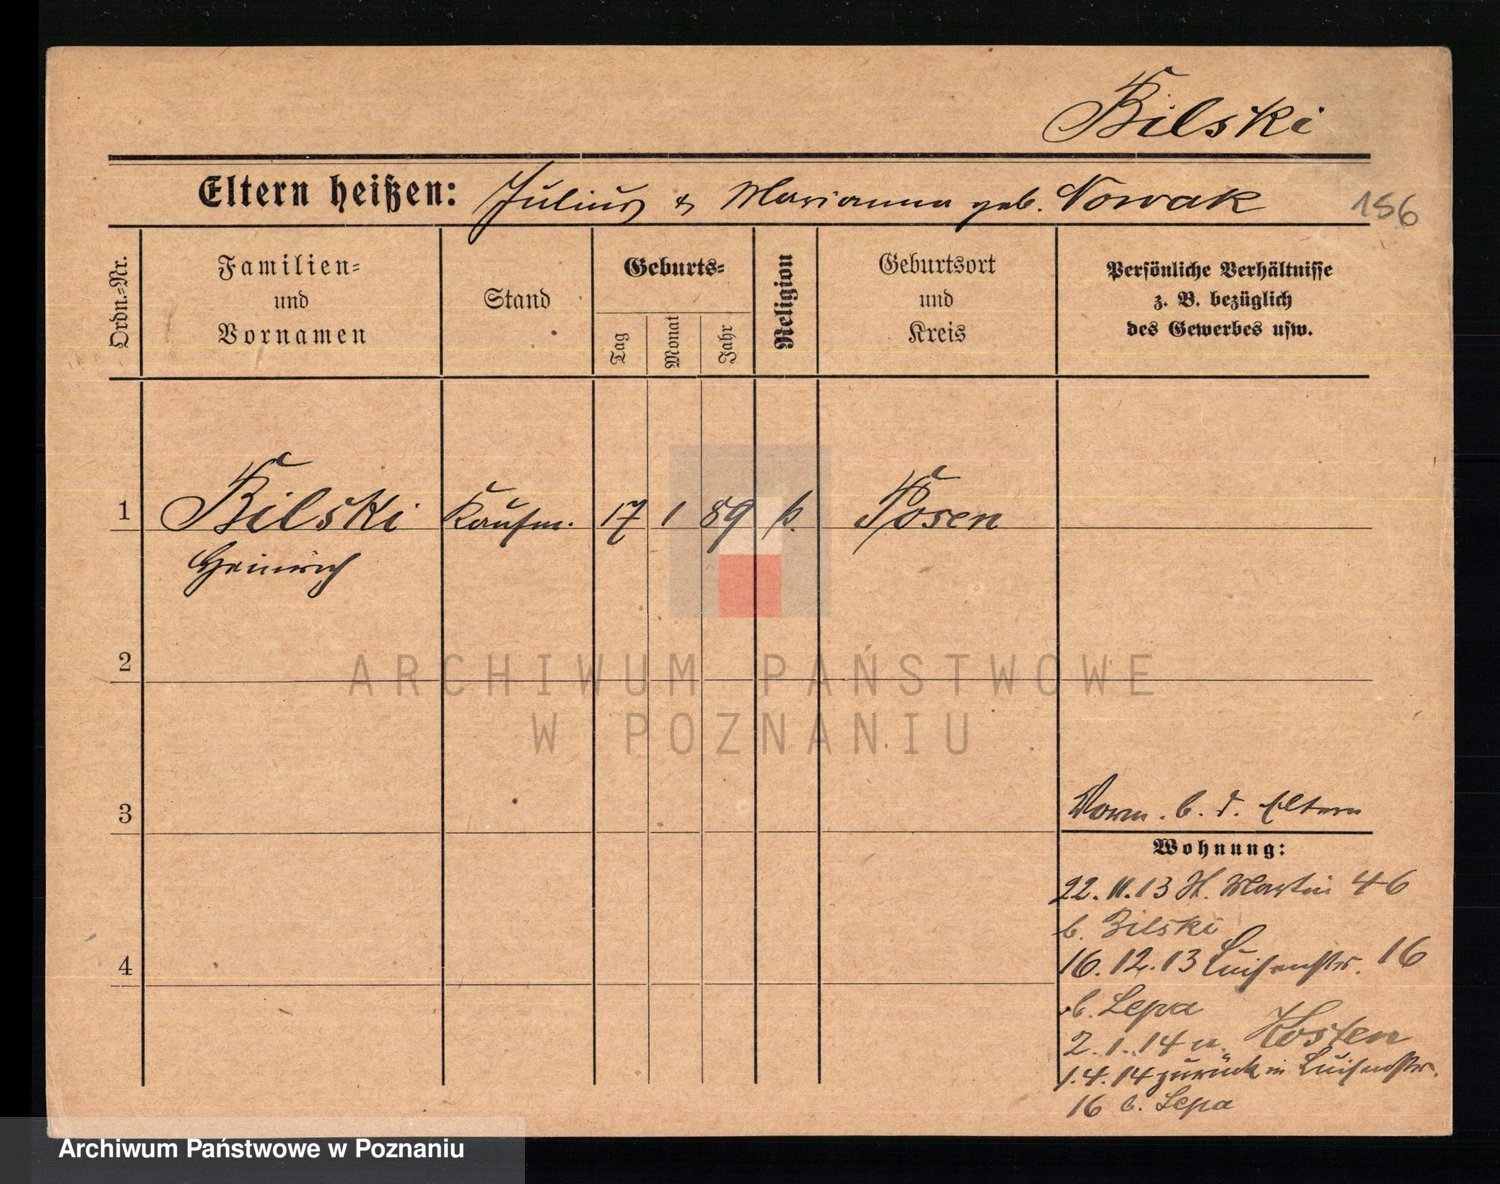 Bilski
Eltern heißen: Julius & Marianna geb. Nowak
156
Ordn.-Nr.
Familien-
und
Vornamen
Stand
Geburts-
Tag
Monat
Jahr
Religion
Geburtsort
und
Kreis
Persönliche Verhältnisse
z. B. bezüglich
des Gewerbes usw.
1 Bilski Kaufm. 17 1 89 k. Posen
Heinrich
2
ARCHIWUM PAŃSTWOWE
W POZNANIU
3
Vorm. b. d. Eltern
Wohnung:
22. 11. 13 St. Martin 46
b. Bilski
4
16. 12. 13 Luisenstr. 16
b. Lepa
2. 1. 14 n. Kosten
1. 4. 14 zurück in Luisenstr.
16 b. Lepa
Archiwum Państwowe w Poznaniu